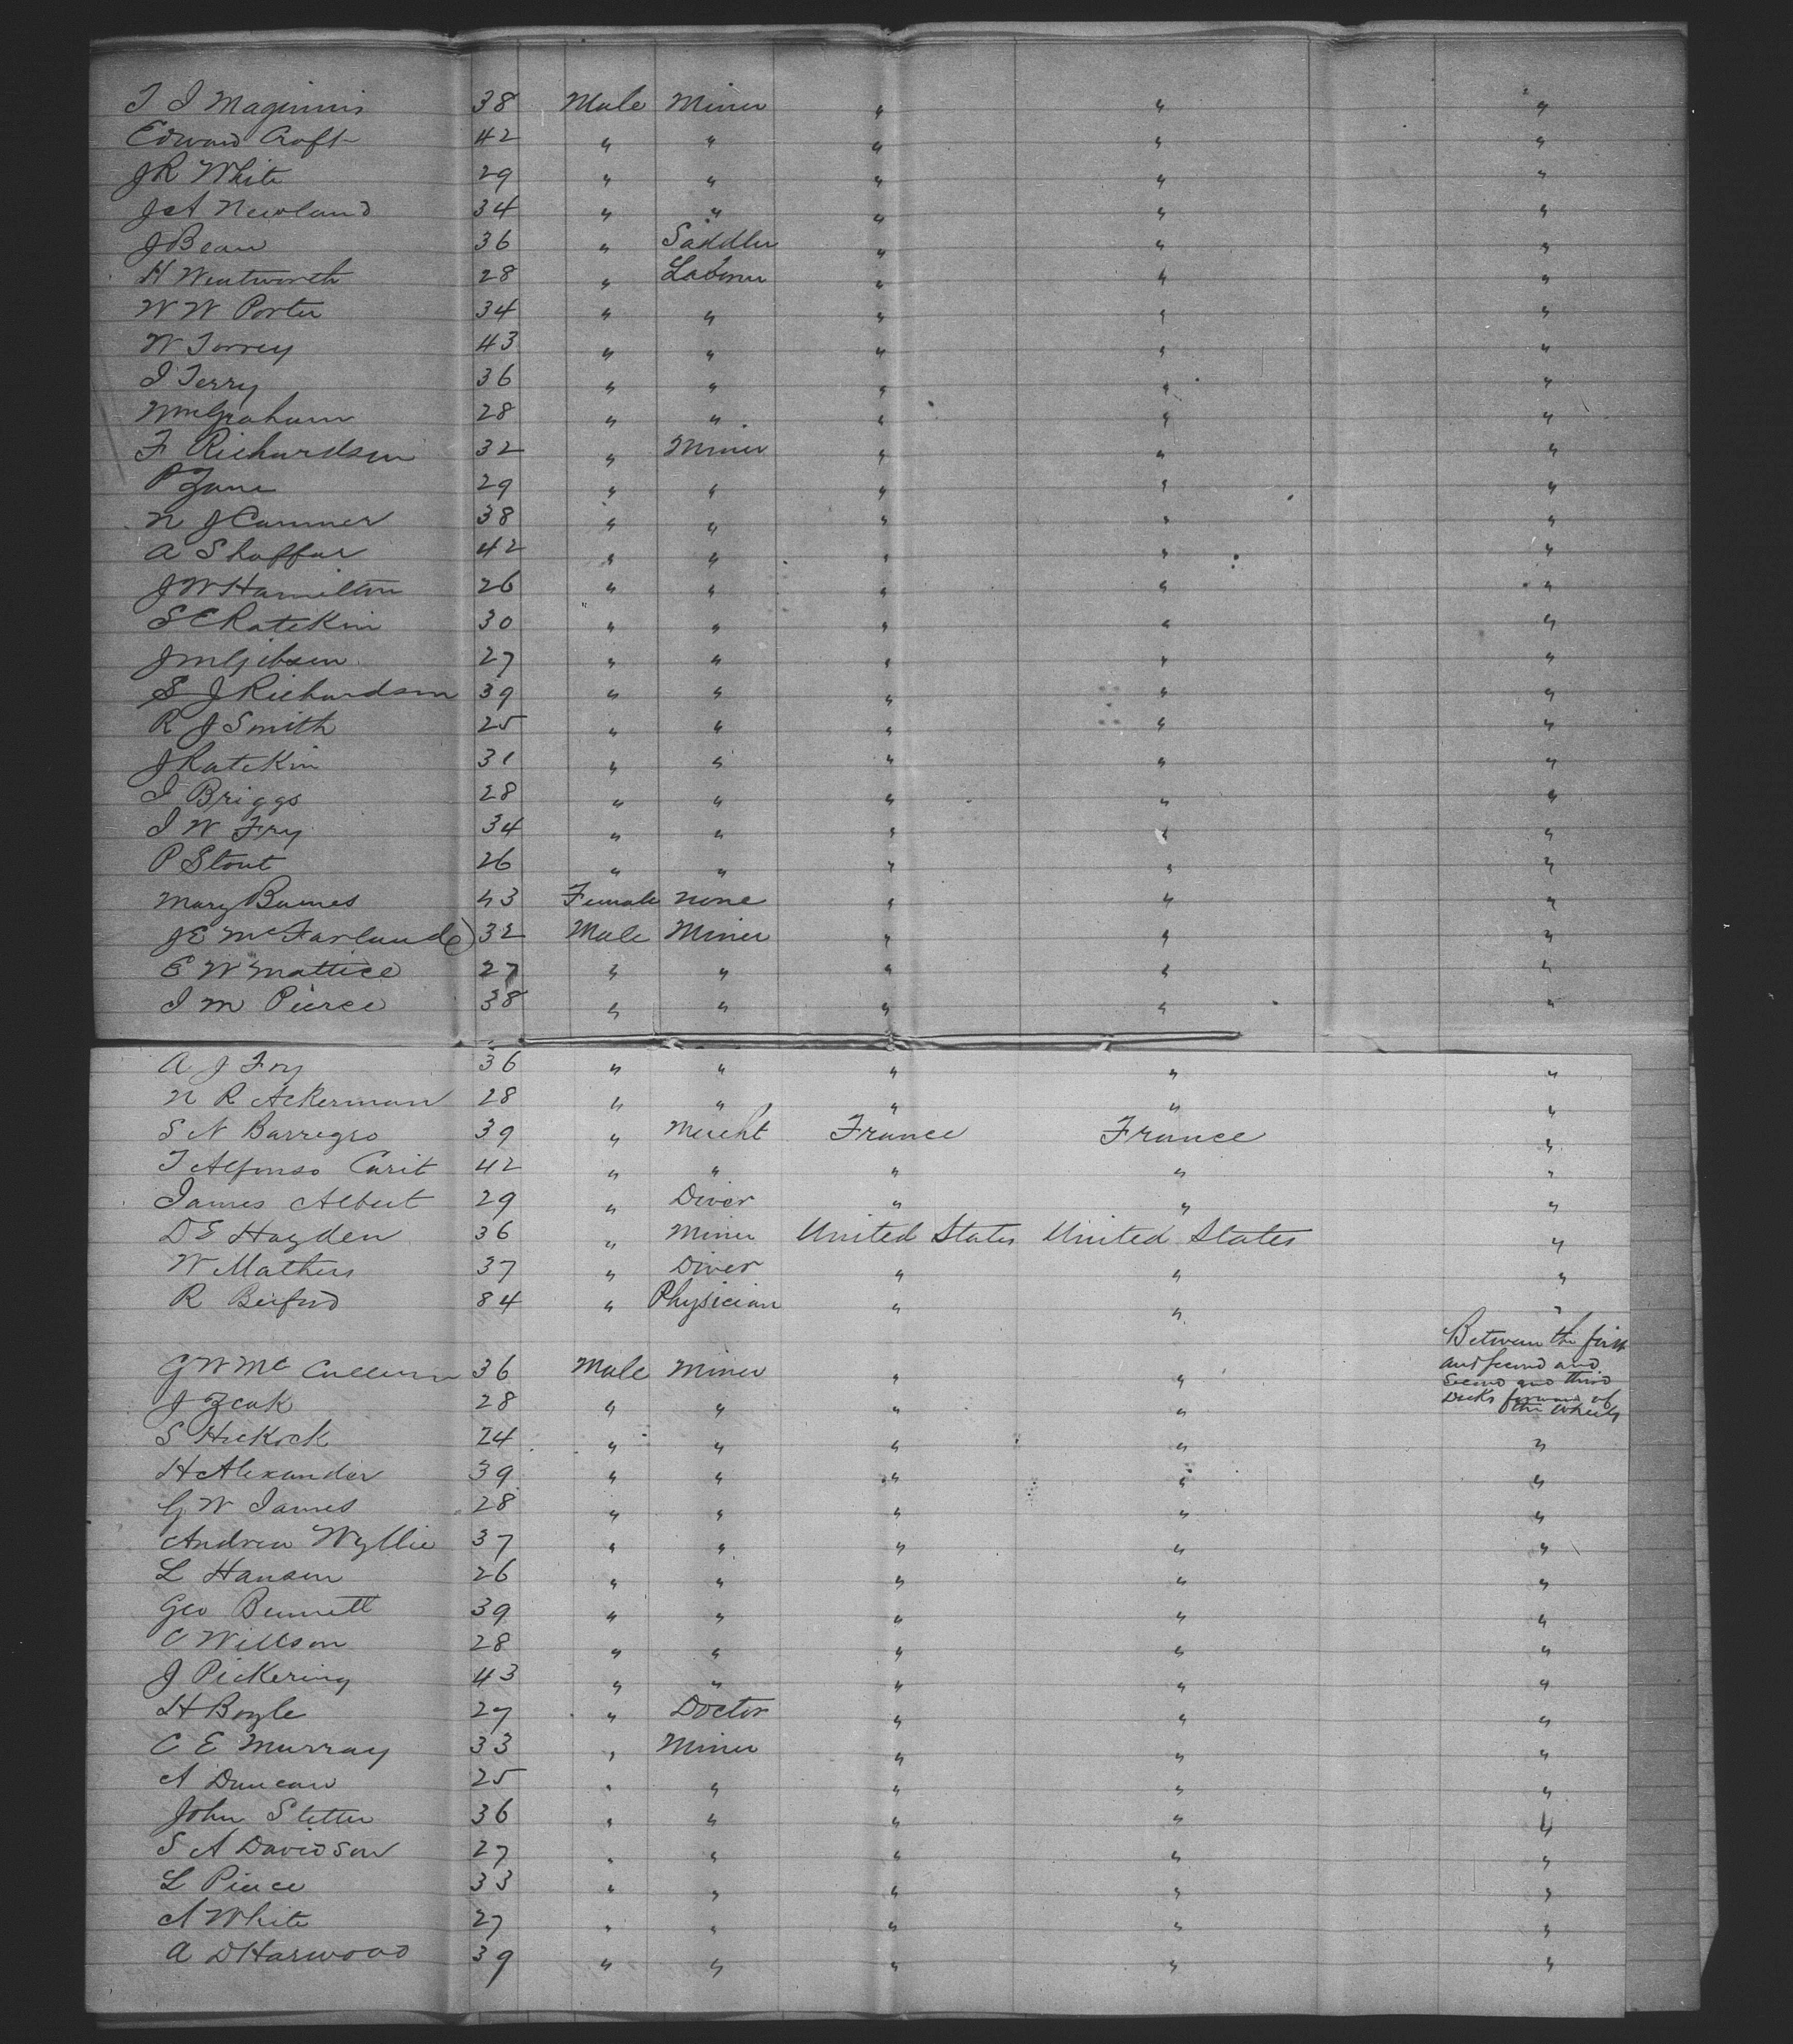 T J Maginnis 38 Male Miner " " "
Edward Croft 42 " " " " "
J R White 29 " " " " "
J A Newland 34 " " " " "
J Bean 36 " Saddler " " "
H Wentworth 28 " Laborer " " "
W W Porter 34 " " " " "
W Torrey 43 " " " " "
J Terry 36 " " " " "
Wm Graham 28 " " " " "
F Richardson 32 " Miner " " "
P Zane 29 " " " " "
N J Cammer 38 " " " " "
A Shaffar 42 " " " " "
J W Hamilton 26 " " " " "
S E Ratekin 30 " " " " "
J M Gibson 27 " " " " "
S J Richardson 39 " " " " "
R J Smith 25 " " " " "
J Ratekin 31 " " " " "
I Briggs 28 " " " " "
I W Fry 34 " " " " "
P Stout 26 " " " " "
Mary Barnes 43 Female None " " "
J E McFarland 32 Male Miner " " "
E W Mattice 27 " " " " "
I M Pierce 38 " " " " "
A J Fry 36 " " " " "
N R Ackerman 28 " " " " "
S N Barregro 39 " Mercht France France "
T Alfonso Carit 42 " " " " "
James Albert 29 " Diver " " "
D E Hayden 36 " Miner United States United States "
W Mathers 37 " Diver " " "
R 84 " Physician " " "
Between the first
G W McCullum 36 Male Miner " " and second and
second and third
J Zcak 28 " " " " Decks forward of
the wheels
S Hickock 24 " " " " "
H Alexander 39 " " " " "
G W James 28 " " " " "
Andrew Wyllie 37 " " " " "
L Hansen 26 " " " " "
Geo Bennett 39 " " " " "
C Willson 28 " " " " "
J Pickering 43 " " " " "
H Boyle 27 " Doctor " " "
C E Murray 33 " Miner " " "
A Duncan 25 " " " " "
John Stetter 36 " " " " "
S A Davidson 27 " " " " "
L Pierce 33 " " " " "
A White 27 " " " " "
A D Harwood 39 " " " " "